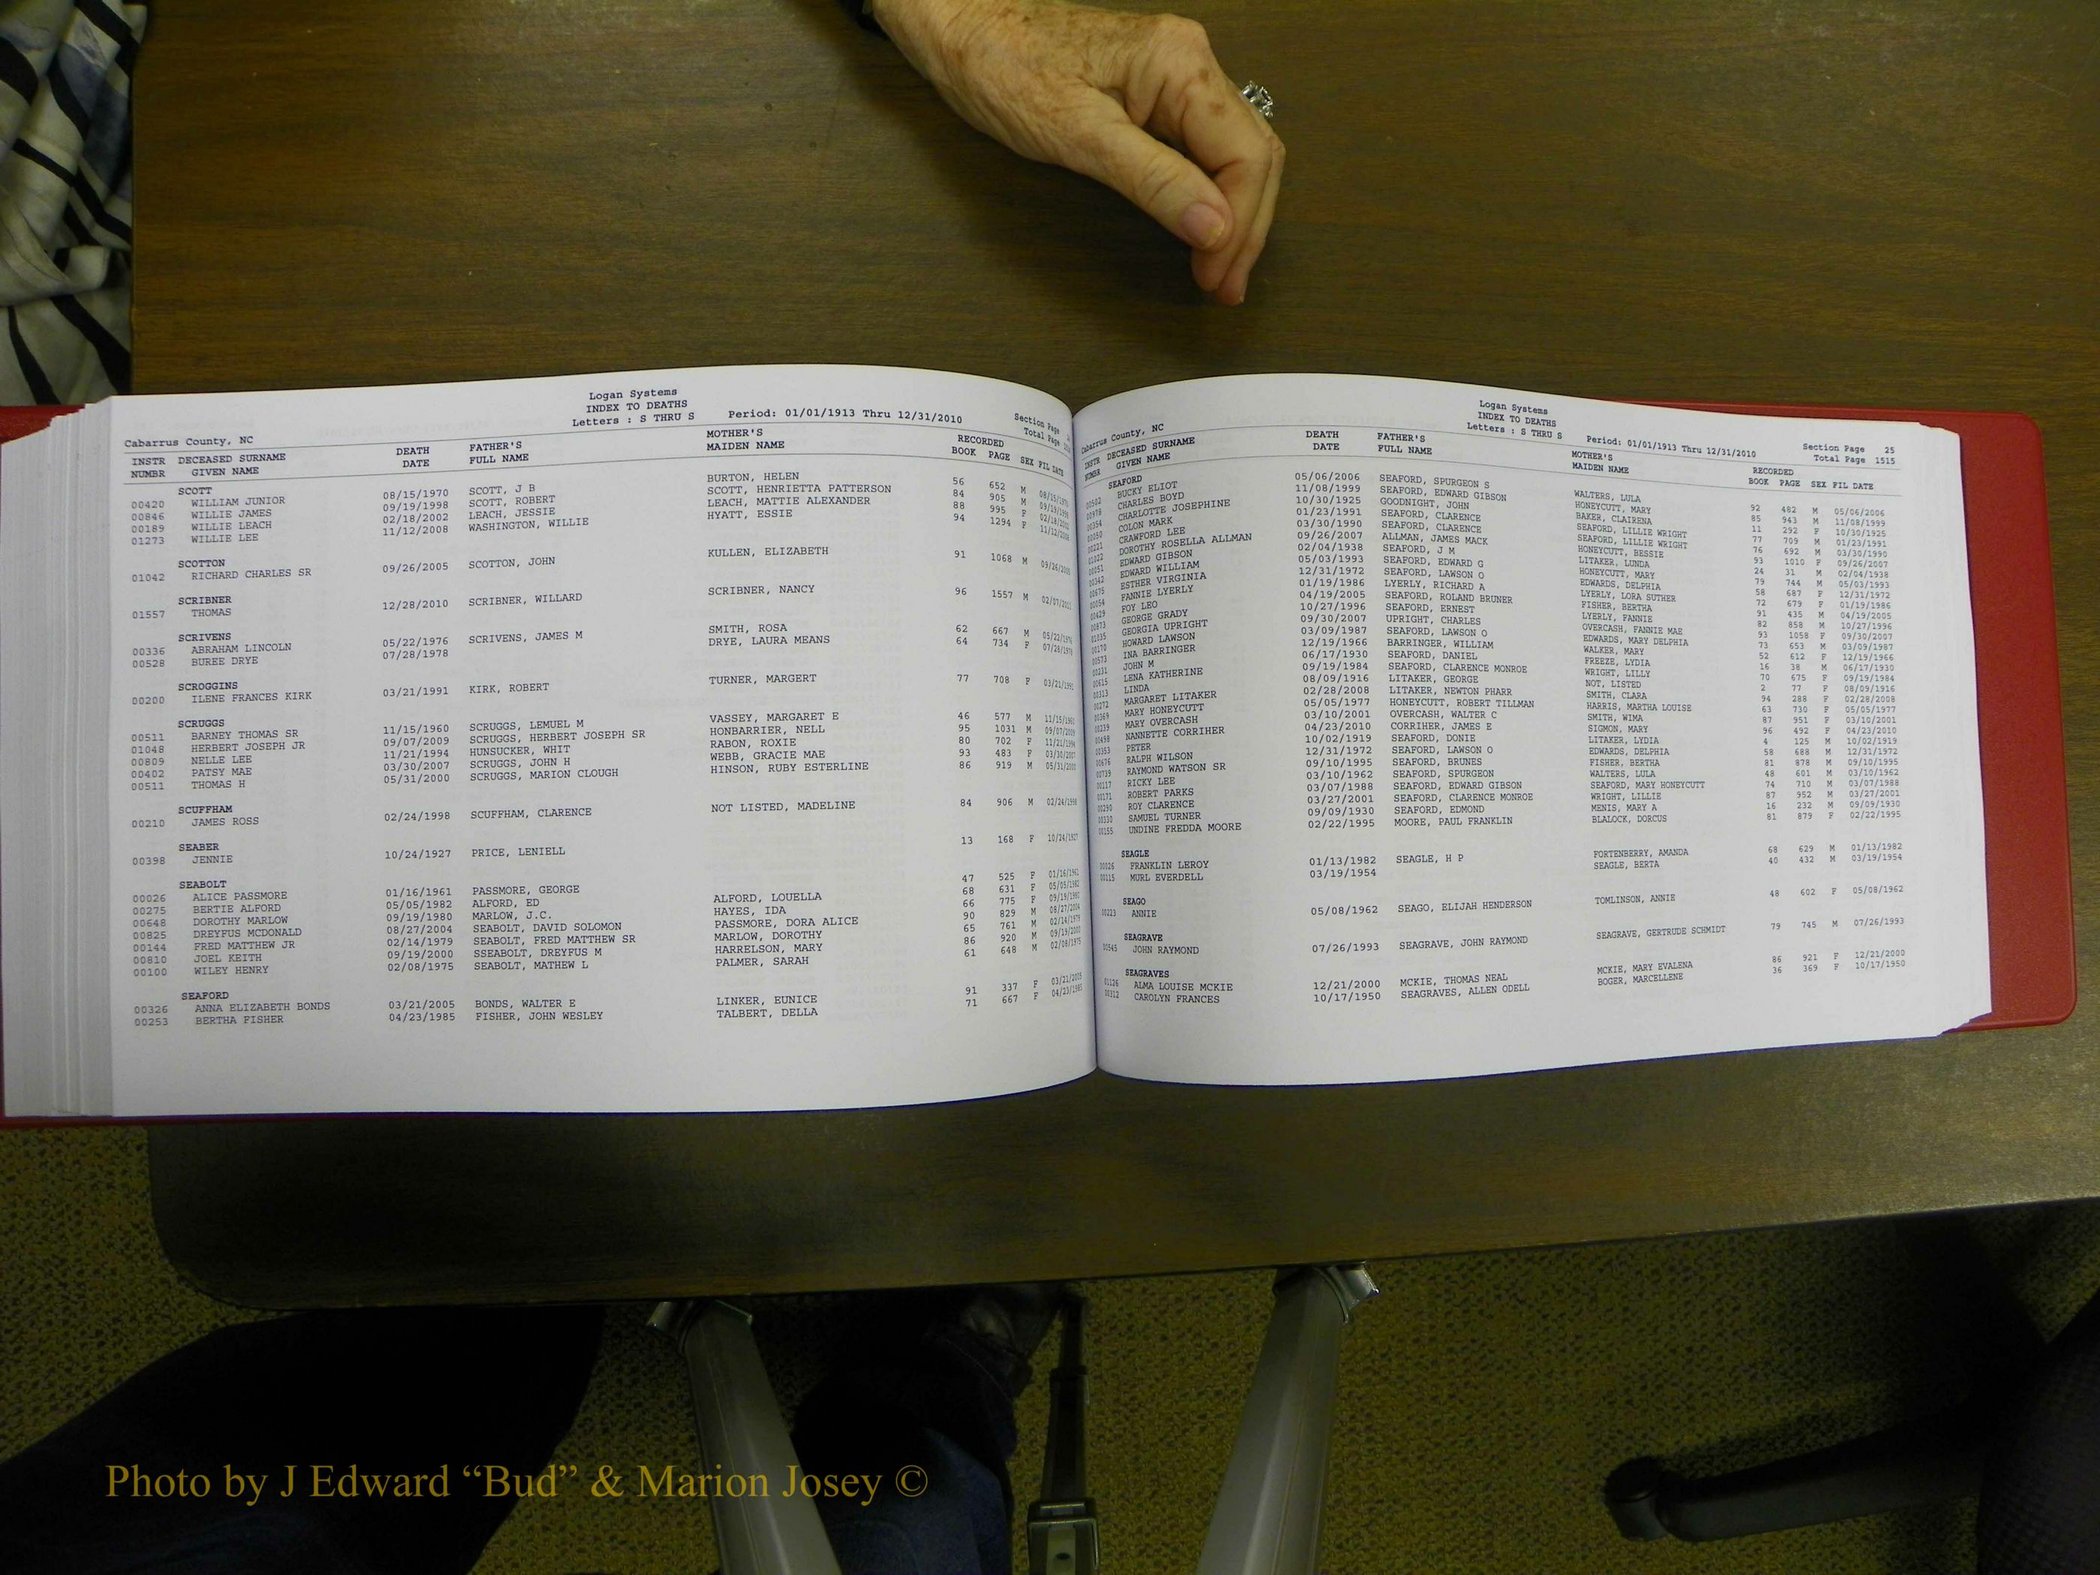 Logan Systems
INDEX TO DEATHS
Letters : S THRU S Period: 01/01/1913 Thru 12/31/2010 Section Page
Cabarrus County, NC Total Page
INSTR DECEASED SURNAME DEATH FATHER'S MOTHER'S RECORDED
NUMBR GIVEN NAME DATE FULL NAME MAIDEN NAME BOOK PAGE SEX FIL DATE
SCOTT
00420 WILLIAM JUNIOR 08/15/1970 SCOTT, J B BURTON, HELEN 56 652 M 08/15/1970
00846 WILLIE JAMES 09/19/1998 SCOTT, ROBERT SCOTT, HENRIETTA PATTERSON 84 905 M
00189 WILLIE LEACH 02/18/2002 LEACH, JESSIE LEACH, MATTIE ALEXANDER 88 995 F
01273 WILLIE LEE 11/12/2008 WASHINGTON, WILLIE HYATT, ESSIE 94 1294 F
SCOTTON
01042 RICHARD CHARLES SR 09/26/2005 SCOTTON, JOHN KULLEN, ELIZABETH 91 1068 M 09/26/2005
SCRIBNER
01557 THOMAS 12/28/2010 SCRIBNER, WILLARD SCRIBNER, NANCY 96 1557 M 02/07/2011
SCRIVENS
00336 ABRAHAM LINCOLN 05/22/1976 SCRIVENS, JAMES M SMITH, ROSA 62 667 M 05/22/1976
00528 BUREE DRYE 07/28/1978 DRYE, LAURA MEANS 64 734 F 07/28/1978
SCROGGINS
00200 ILENE FRANCES KIRK 03/21/1991 KIRK, ROBERT TURNER, MARGERT 77 708 F 03/21/1991
SCRUGGS
00511 BARNEY THOMAS SR 11/15/1960 SCRUGGS, LEMUEL M VASSEY, MARGARET E 46 577 M 11/15/1960
01048 HERBERT JOSEPH JR 09/07/2009 SCRUGGS, HERBERT JOSEPH SR HONBARRIER, NELL 95 1031 M 09/07/2009
00809 NELLE LEE 11/21/1994 HUNSUCKER, WHIT RABON, ROXIE 80 702 F 11/21/1994
00402 PATSY MAE 03/30/2007 SCRUGGS, JOHN H WEBB, GRACIE MAE 93 483 F 03/30/2007
00511 THOMAS H 05/31/2000 SCRUGGS, MARION CLOUGH HINSON, RUBY ESTERLINE 86 919 M 05/31/2000
SCUFFHAM
00210 JAMES ROSS 02/24/1998 SCUFFHAM, CLARENCE NOT LISTED, MADELINE 84 906 M 02/24/1998
SEABER
00398 JENNIE 10/24/1927 PRICE, LENIELL 13 168 F 10/24/1927
SEABOLT
00026 ALICE PASSMORE 01/16/1961 PASSMORE, GEORGE 47 525 F 01/16/1961
00275 BERTIE ALFORD 05/05/1982 ALFORD, ED ALFORD, LOUELLA 68 631 F 05/05/1982
00648 DOROTHY MARLOW 09/19/1980 MARLOW, J.C. HAYES, IDA 66 775 F 09/19/1980
00825 DREYFUS MCDONALD 08/27/2004 SEABOLT, DAVID SOLOMON PASSMORE, DORA ALICE 90 829 M 08/27/2004
00144 FRED MATTHEW JR 02/14/1979 SEABOLT, FRED MATTHEW SR MARLOW, DOROTHY 65 761 M 02/14/1979
00810 JOEL KEITH 09/19/2000 SSEABOLT, DREYFUS M HARRELSON, MARY 86 920 M 09/19/2000
00100 WILEY HENRY 02/08/1975 SEABOLT, MATHEW L PALMER, SARAH 61 648 M 02/08/1975
SEAFORD
00326 ANNA ELIZABETH BONDS 03/21/2005 BONDS, WALTER E LINKER, EUNICE 91 337 F 03/21/2005
00253 BERTHA FISHER 04/23/1985 FISHER, JOHN WESLEY TALBERT, DELLA 71 667 F 04/23/1985
Logan Systems
INDEX TO DEATHS
Letters : S THRU S Period: 01/01/1913 Thru 12/31/2010 Section Page 25
Cabarrus County, NC Total Page 1515
INSTR DECEASED SURNAME DEATH FATHER'S MOTHER'S RECORDED
NUMBR GIVEN NAME DATE FULL NAME MAIDEN NAME BOOK PAGE SEX FIL DATE
SEAFORD
00502 BUCKY ELIOT 05/06/2006 SEAFORD, SPURGEON S WALTERS, LULA 92 482 M 05/06/2006
00978 CHARLES BOYD 11/08/1999 SEAFORD, EDWARD GIBSON HONEYCUTT, MARY 85 943 M 11/08/1999
00354 CHARLOTTE JOSEPHINE 10/30/1925 GOODNIGHT, JOHN BAKER, CLAIRENA 11 292 F 10/30/1925
00050 COLON MARK 01/23/1991 SEAFORD, CLARENCE SEAFORD, LILLIE WRIGHT 77 709 M 01/23/1991
00221 CRAWFORD LEE 03/30/1990 SEAFORD, CLARENCE SEAFORD, LILLIE WRIGHT 76 692 M 03/30/1990
01022 DOROTHY ROSELLA ALLMAN 09/26/2007 ALLMAN, JAMES MACK HONEYCUTT, BESSIE 93 1010 F 09/26/2007
00051 EDWARD GIBSON 02/04/1938 SEAFORD, J M LITAKER, LUNDA 24 31 M 02/04/1938
00342 EDWARD WILLIAM 05/03/1993 SEAFORD, EDWARD G HONEYCUTT, MARY 79 744 M 05/03/1993
00675 ESTHER VIRGINIA 12/31/1972 SEAFORD, LAWSON O EDWARDS, DELPHIA 58 687 F 12/31/1972
00054 FANNIE LYERLY 01/19/1986 LYERLY, RICHARD A LYERLY, LORA SUTHER 72 679 F 01/19/1986
00429 FOY LEO 04/19/2005 SEAFORD, ROLAND BRUNER FISHER, BERTHA 91 435 M 04/19/2005
00873 GEORGE GRADY 10/27/1996 SEAFORD, ERNEST LYERLY, FANNIE 82 858 M 10/27/1996
01035 GEORGIA UPRIGHT 09/30/2007 UPRIGHT, CHARLES OVERCASH, FANNIE MAE 93 1058 F 09/30/2007
00170 HOWARD LAWSON 03/09/1987 SEAFORD, LAWSON O EDWARDS, MARY DELPHIA 73 653 M 03/09/1987
00573 INA BARRINGER 12/19/1966 BARRINGER, WILLIAM WALKER, MARY 52 612 F 12/19/1966
00231 JOHN M 06/17/1930 SEAFORD, DANIEL FREEZE, LYDIA 16 38 M 06/17/1930
00615 LENA KATHERINE 09/19/1984 SEAFORD, CLARENCE MONROE WRIGHT, LILLY 70 675 F 09/19/1984
00313 LINDA 08/09/1916 LITAKER, GEORGE NOT, LISTED 2 77 F 08/09/1916
00272 MARGARET LITAKER 02/28/2008 LITAKER, NEWTON PHARR SMITH, CLARA 94 288 F 02/28/2008
00369 MARY HONEYCUTT 05/05/1977 HONEYCUTT, ROBERT TILLMAN HARRIS, MARTHA LOUISE 63 730 F 05/05/1977
00239 MARY OVERCASH 03/10/2001 OVERCASH, WALTER C SMITH, WIMA 87 951 F 03/10/2001
00498 NANNETTE CORRIHER 04/23/2010 CORRIHER, JAMES E SIGMON, MARY 96 492 F 04/23/2010
00353 PETER 10/02/1919 SEAFORD, DONIE LITAKER, LYDIA 4 125 M 10/02/1919
00676 RALPH WILSON 12/31/1972 SEAFORD, LAWSON O EDWARDS, DELPHIA 58 688 M 12/31/1972
00719 RAYMOND WATSON SR 09/10/1995 SEAFORD, BRUNES FISHER, BERTHA 81 878 M 09/10/1995
00117 RICKY LEE 03/10/1962 SEAFORD, SPURGEON WALTERS, LULA 48 601 M 03/10/1962
00171 ROBERT PARKS 03/07/1988 SEAFORD, EDWARD GIBSON SEAFORD, MARY HONEYCUTT 74 710 M 03/07/1988
00290 ROY CLARENCE 03/27/2001 SEAFORD, CLARENCE MONROE WRIGHT, LILLIE 87 952 M 03/27/2001
00330 SAMUEL TURNER 09/09/1930 SEAFORD, EDMOND MENIS, MARY A 16 232 M 09/09/1930
00155 UNDINE FREDDA MOORE 02/22/1995 MOORE, PAUL FRANKLIN BLALOCK, DORCUS 81 879 F 02/22/1995
SEAGLE
00026 FRANKLIN LEROY 01/13/1982 SEAGLE, H P FORTENBERRY, AMANDA 68 629 M 01/13/1982
00115 MURL EVERDELL 03/19/1954 SEAGLE, BERTA 40 432 M 03/19/1954
SEAGO
00223 ANNIE 05/08/1962 SEAGO, ELIJAH HENDERSON TOMLINSON, ANNIE 48 602 F 05/08/1962
SEAGRAVE
00545 JOHN RAYMOND 07/26/1993 SEAGRAVE, JOHN RAYMOND SEAGRAVE, GERTRUDE SCHMIDT 79 745 M 07/26/1993
SEAGRAVES
01126 ALMA LOUISE MCKIE 12/21/2000 MCKIE, THOMAS NEAL MCKIE, MARY EVALENA 86 921 F 12/21/2000
00312 CAROLYN FRANCES 10/17/1950 SEAGRAVES, ALLEN ODELL BOGER, MARCELLENE 36 369 F 10/17/1950
Photo by J Edward “Bud” & Marion Josey ©